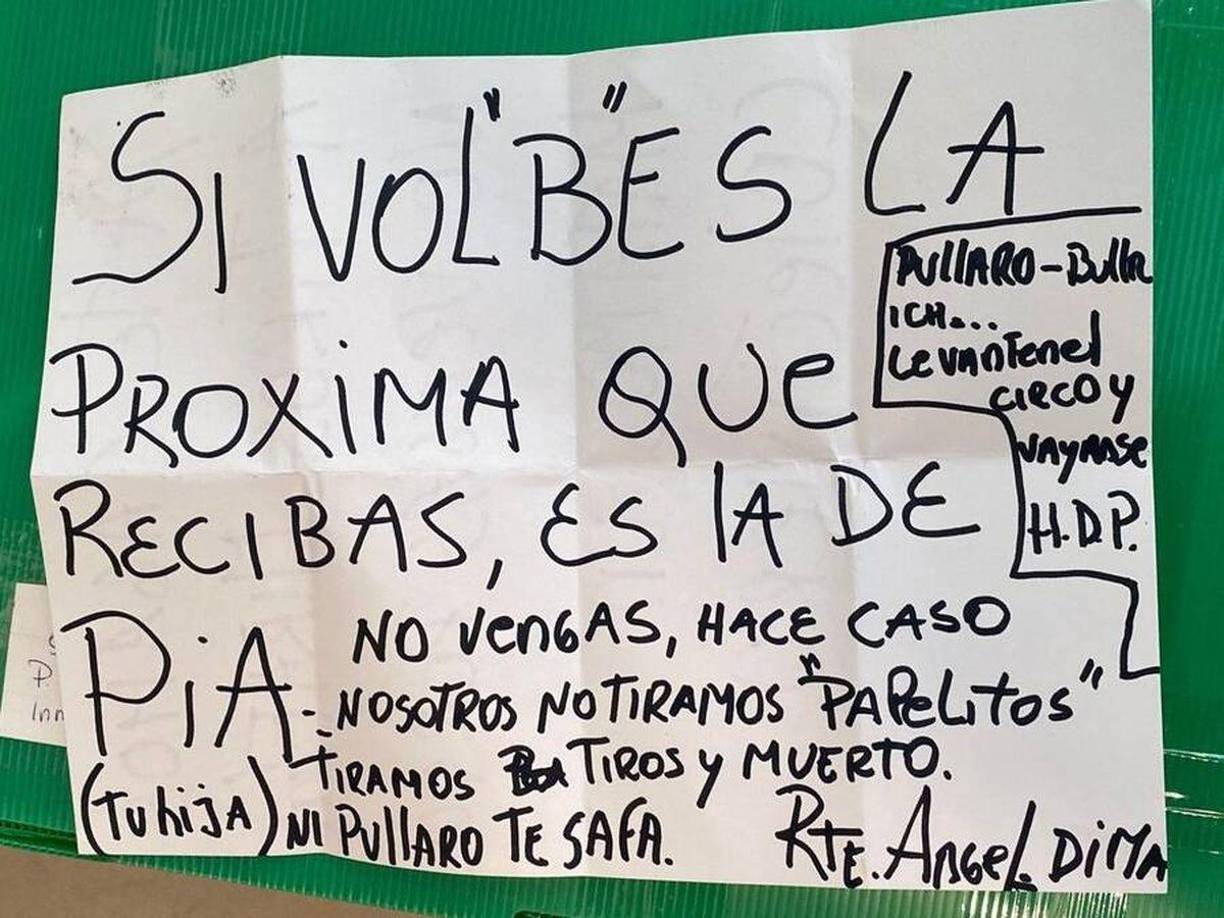 SI VOL"B"ES LA
PROXIMA QUE
RECIBAS, ES LA DE
PIA.
(Tu hija)
NO VENGAS, HACE CASO
NOSOTROS NO TIRAMOS "PAPELITOS"
TIRAMOS TIROS Y MUERTO.
NI PULLARO TE SAFA.
RTE. ANGEL DIMA
PULLARO-Bullr
ICH...
LEVANTEN el
CIRCO Y
VAYANSE
H.D.P.
P.
Inn